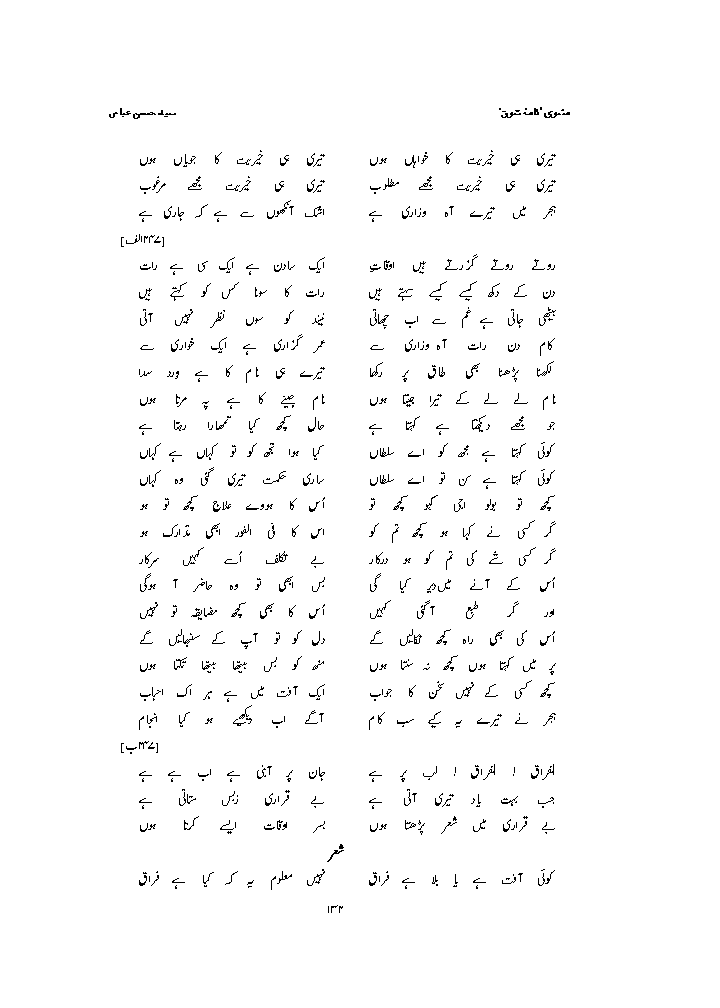 مثنوی 'نامۂ شوق' سید محسن عباس
تیری ہی خیریت کا خواہاں ہوں تیری ہی خیریت کا جویاں ہوں
تیری ہی خیریت مجھے مطلوب تیری ہی خیریت مجھے مرغوب
ہجر میں تیرے آہ وزاری ہے اشک آنکھوں سے ہے کہ جاری ہے
[۲۴۷الف]
روتے روتے گزرتے ہیں اوقات ایک سادن ہے ایک سی ہے رات
دن کے دکھ کیسے کیسے سہتے ہیں رات کا سونا کس کو کہتے ہیں
بیٹھی جاتی ہے غم سے اب چھاتی نیند کو سوں نظر نہیں آتی
کام دن رات آہ وزاری سے عمر گزاری ہے ایک خواری سے
لکھنا پڑھنا بھی طاق پر رکھا تیرے ہی نام کا ہے ورد سدا
نام لے لے کے تیرا جیتا ہوں نام جینے کا ہے پہ مرتا ہوں
جو مجھے دیکھتا ہے کہتا ہے حال کچھ کیا تمھارا رہتا ہے
کوئی کہتا ہے مجھ کو اے سلطاں کیا ہوا تجھ کو تو کہاں ہے کہاں
کوئی کہتا ہے سن تو اے سلطاں ساری حکمت تیری گئی وہ کہاں
کچھ تو بولو اجی کہو کچھ تو اُس کا ہووے علاج کچھ تو ہو
گر کسی نے کہا ہو کچھ تم کو اس کا فی الفور ابھی تدارک ہو
گر کسی شے کی تم کو ہو درکار بے تکلف اُسے کہیں سرکار
اُس کے آنے میں دیر کیا گی بس ابھی تو وہ حاضر آ ہوگی
اور گر طبع آگئی کہیں اُس کا بھی کچھ مضایقہ تو نہیں
اُس کی بھی راہ کچھ نکالیں گے دل کو تو آپ کے سنبھالیں گے
پر میں کہتا ہوں کچھ نہ سنتا ہوں منھ کو بس بیٹھا بیٹھا تکتا ہوں
کچھ کسی کے نہیں سخن کا جواب ایک آفت میں ہے ہر اک احباب
ہجر نے تیرے یہ کیے سب کام آگے اب دیکھیے ہو کیا انجام
[۲۴۷ب]
الفراق ! الفراق ! لب پر ہے جان پر آبنی ہے اب ہے ہے
جب بہت یاد تیری آتی ہے بے قراری زبس ستاتی ہے
بے قراری میں شعر پڑھتا ہوں بسر اوقات ایسے کرتا ہوں
شعر
کوئی آفت ہے یا بلا ہے فراق نہیں معلوم یہ کہ کیا ہے فراق
۱۳۲